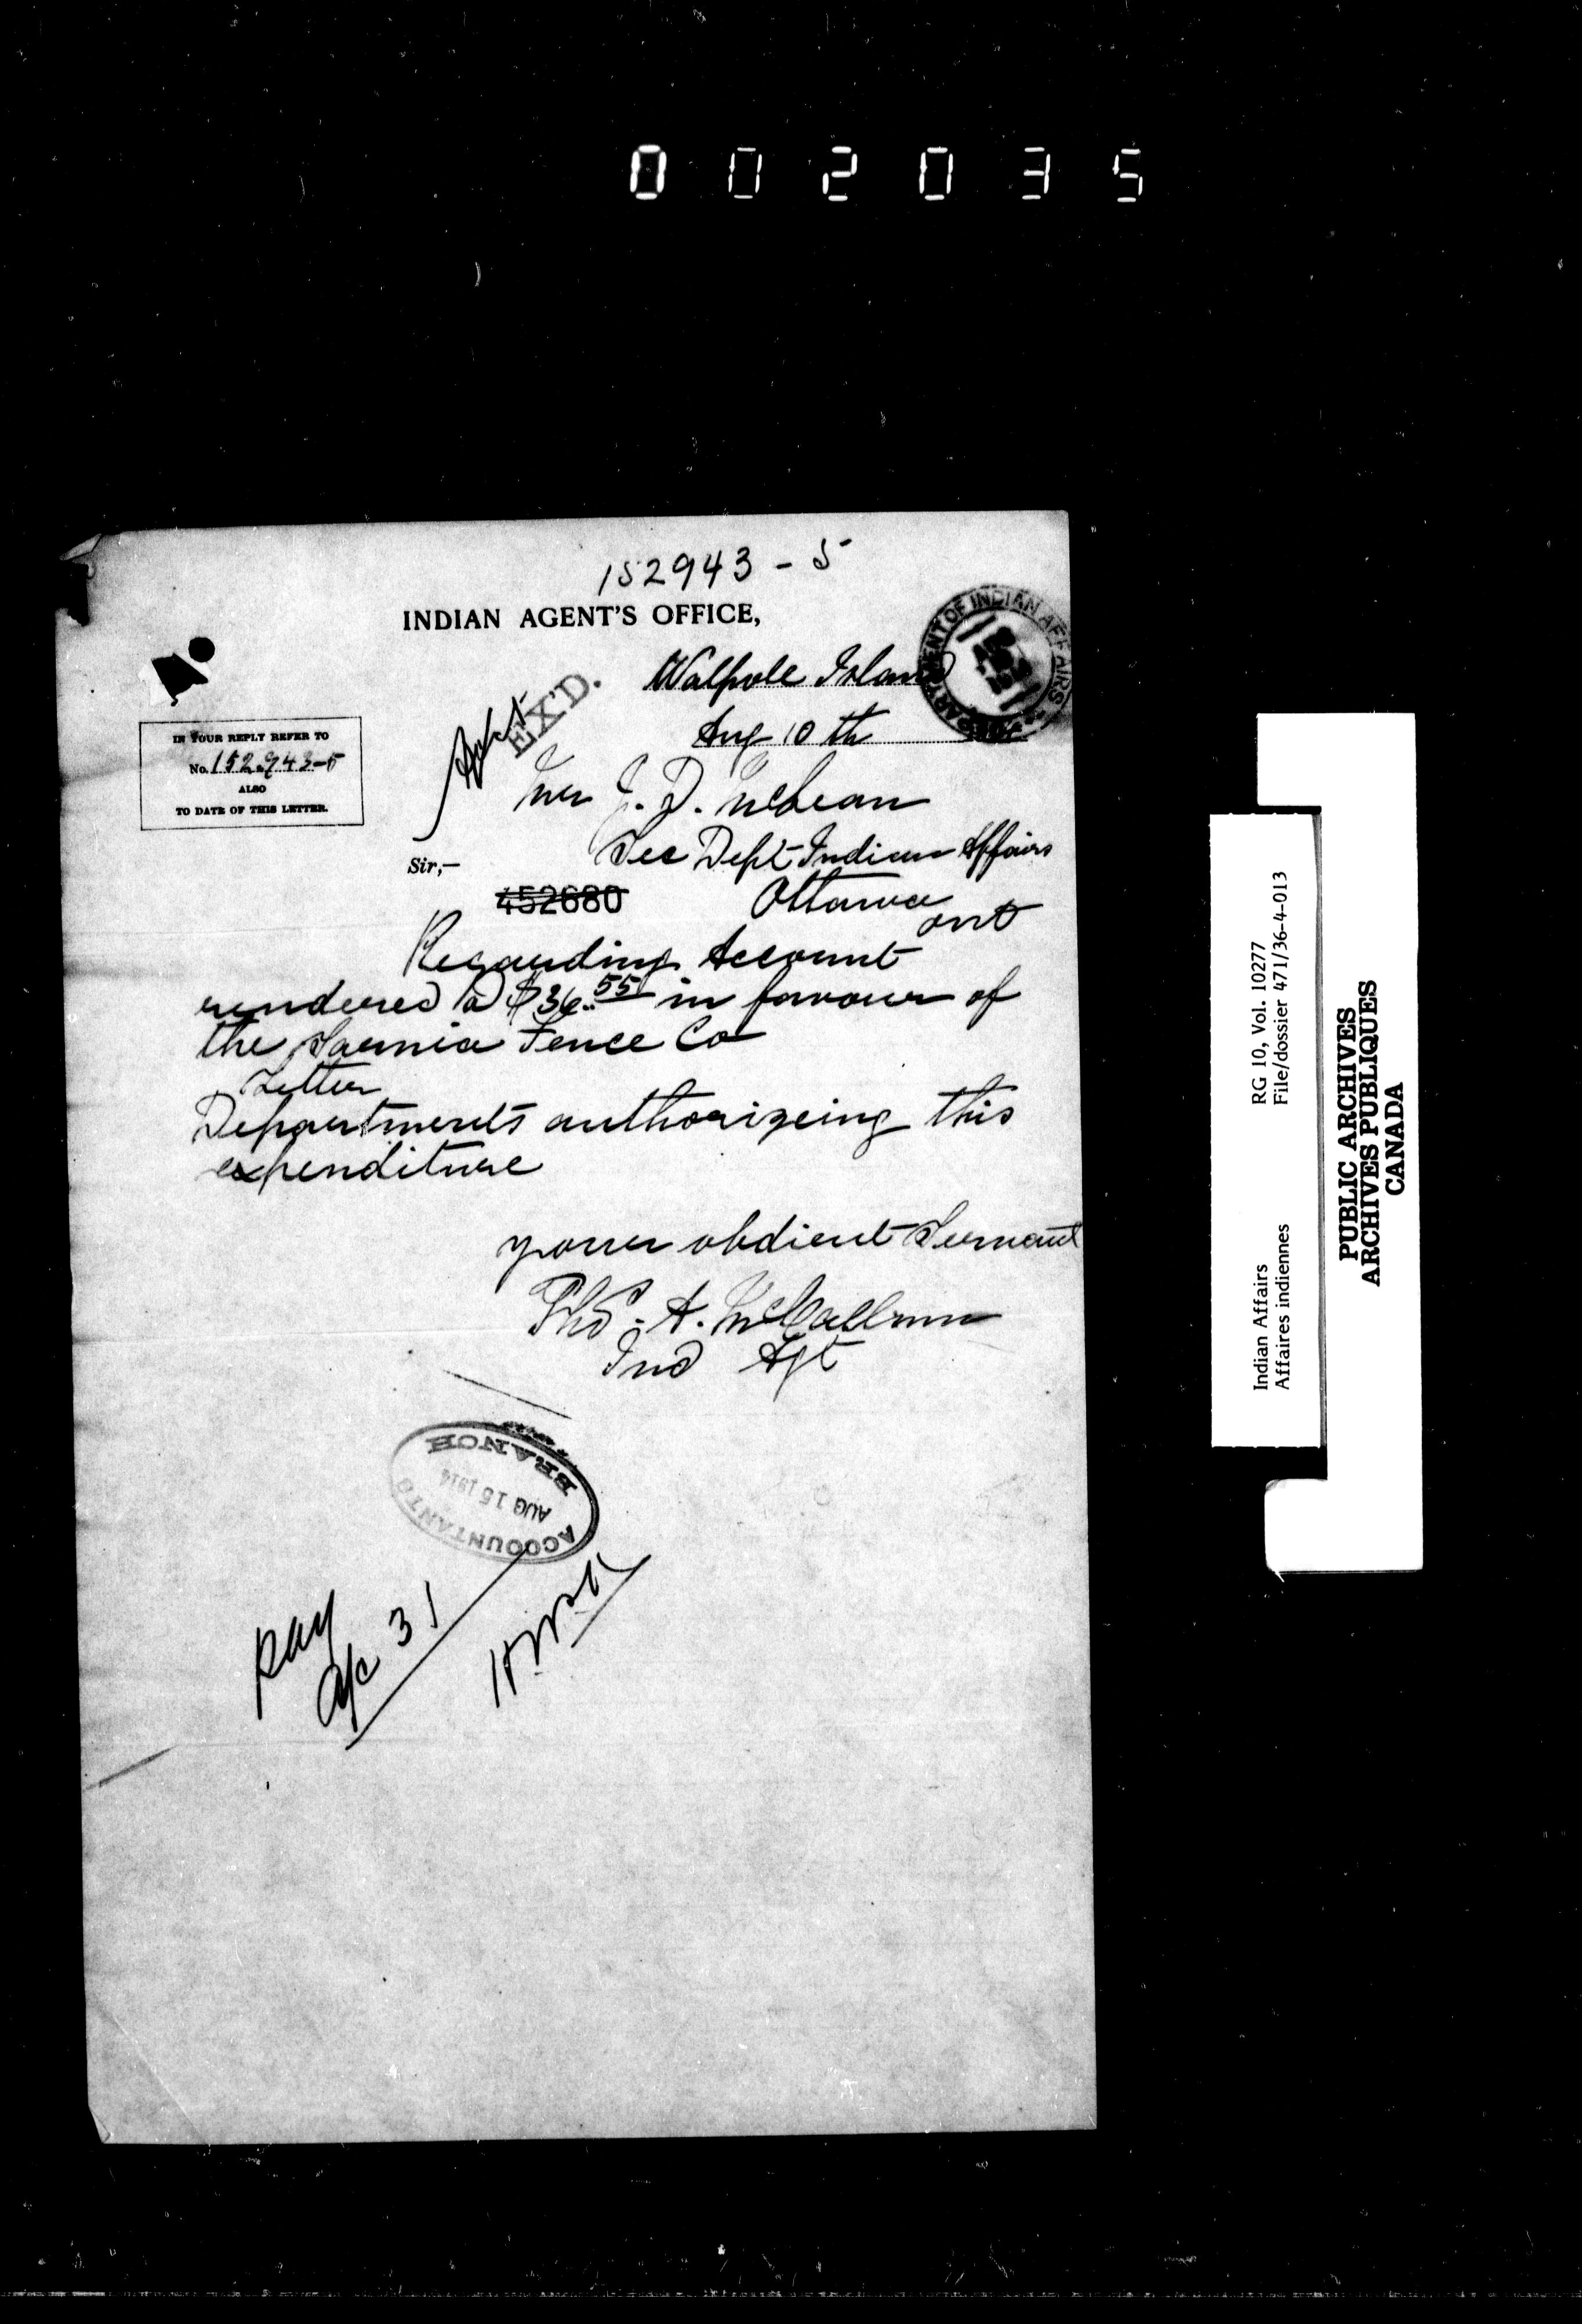 002035
152943-5
INDIAN AGENT'S OFFICE,
Walpole Island
DEPARTMENT OF INDIAN AFFAIRS
Aug 10th
EX'D.
IN YOUR REPLY REFER TO
No. 152,943-5
ALSO
TO DATE OF THIS LETTER.
Mr J. D. McLean
Sir,—
Sec Dept Indian Affairs
452680
Ottawa
Ont
Regarding Account
rendered a $36.55 in favour of
the Sarnia Fence Co
Letter
Departments authorizeing this
expenditure
your obdient Servant
Thos. A. McCallum
Ind Agt
ACCOUNTANTS
AUG 15 1914
BRANCH
Pay
a/c 31
Indian Affairs RG 10, Vol. 10277
Affaires indiennes File/dossier 471/36-4-013
PUBLIC ARCHIVES
ARCHIVES PUBLIQUES
CANADA